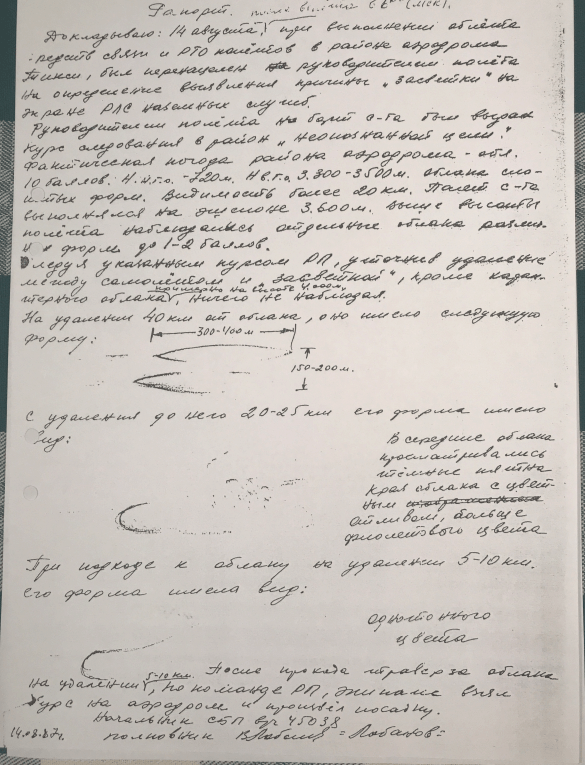 Рапорт.
Докладываю: 14 августа, при выполнении облёта
средств связи и РТО полётов в района аэродрома
Тикси, был перенацелен руководителем полёта
на определение выявления причины „засветки" на
экране РЛС наземных служб.
Руководителем полёта на борт с-та был выдан
курс следования в район „неопознанной цели".
Фактическая погода района аэродрома - отл.
10 баллов. Н.н.г.о. - 720м. Н в.г.о. 3.300-3500м. облака сло-
истых форм. Видимость более 20 км. Полёт с-та
выполнялся на эшелоне 3.600м. Выше высоты
полёта наблюдались отдельные облака различ-
ных форм до 1-2 баллов.
Следуя указанным курсом РП, уточнив удаление
между самолётом и „засветкой", кроме харак-
примерно на высоте 4.000м
терного облака, ничего не наблюдал.
На удалении 40 км от облака, оно имело следующую
форму:
300-400м
150-200м.
С удаления до него 20-25 км его форма имела
вид:
В середине облака
просматривались
тёмные пятна
края облака с цвет-
ным
отливом, больше
фиолетового цвета
При подходе к облаку на удалении 5-10 км.
его форма имела вид:
однотонного
цвета
5-10 км. После прохода траверза облака
на удалении, по команде РП, экипаж взял
курс на аэродром и произвёл посадку.
Начальник СБП в/ч 45038
14.08.87г. полковник = Лобанов =